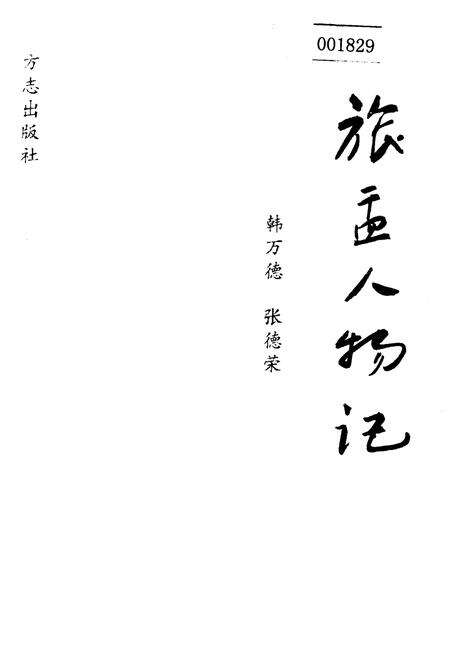 001829
旅盂人物记
韩万德 张德荣
方志出版社